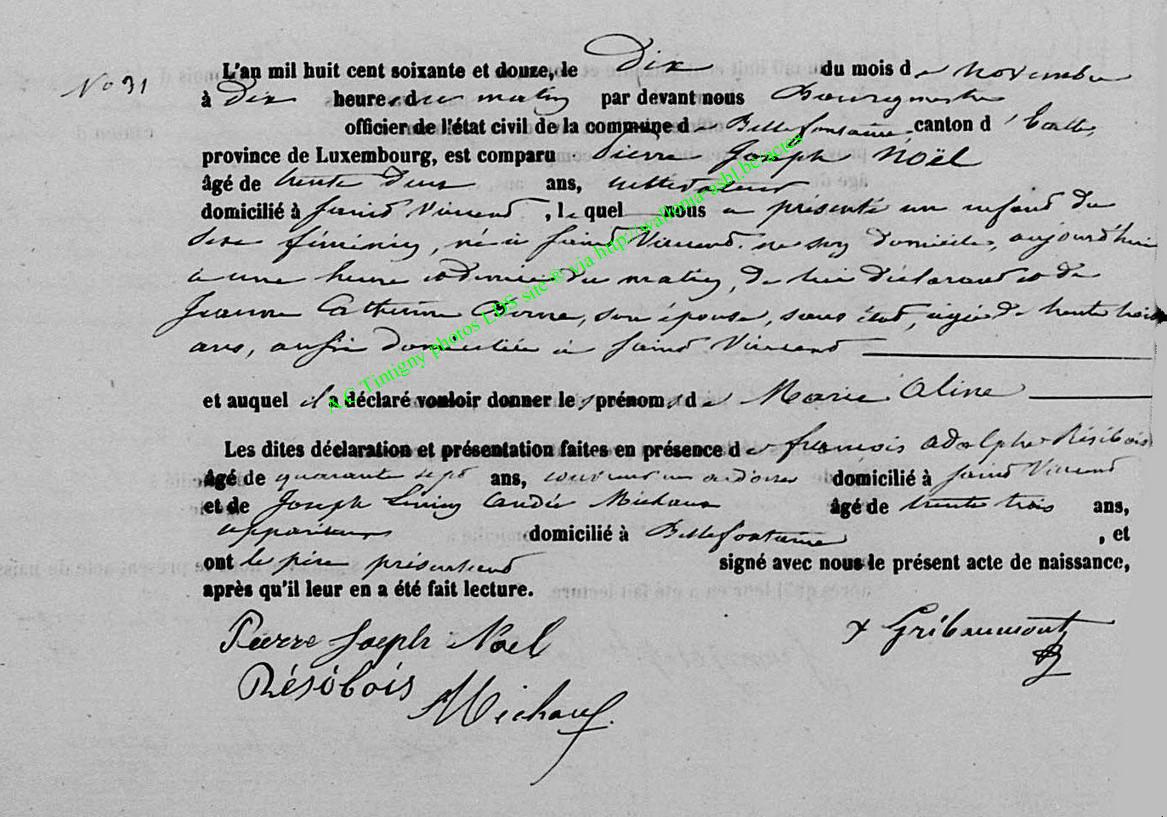 No 31
L'an mil huit cent soixante et douze, le Dix du mois de novembre
à Dix heures du matin par devant nous Bourgmestre
officier de l'état civil de la commune de Bellefontaine, canton d'
province de Luxembourg, est comparu Pierre Joseph Noël
âgé de trente deux ans, cultivateur
domicilié à Saint Vincent, lequel nous a présenté un enfant du
sexe féminin, né à Saint Vincent, en son domicile, aujourd'hui
à une heure et demie du matin, de lui déclarant et de
Jeanne Catherine son épouse, sans état, agée de trente trois
ans, aussi domiciliée à Saint Vincent
et auquel il a déclaré vouloir donner les prénoms de Marie Aline
Les dites déclaration et présentation faites en présence de françois adolphe Résibois
âgé de quarante sept ans, couvreur en ardoises domicilié à Saint Vincent
et de Joseph Michaux âgé de trente trois ans,
appariteur domicilié à Bellefontaine, et
ont le père présentant signé avec nous le présent acte de naissance,
après qu'il leur en a été fait lecture.
Pierre Joseph Noël
Gribaumont
Résibois
Michaux
A.G Tintigny photos LDS site @ via http://wallonia-asbl.be/actes